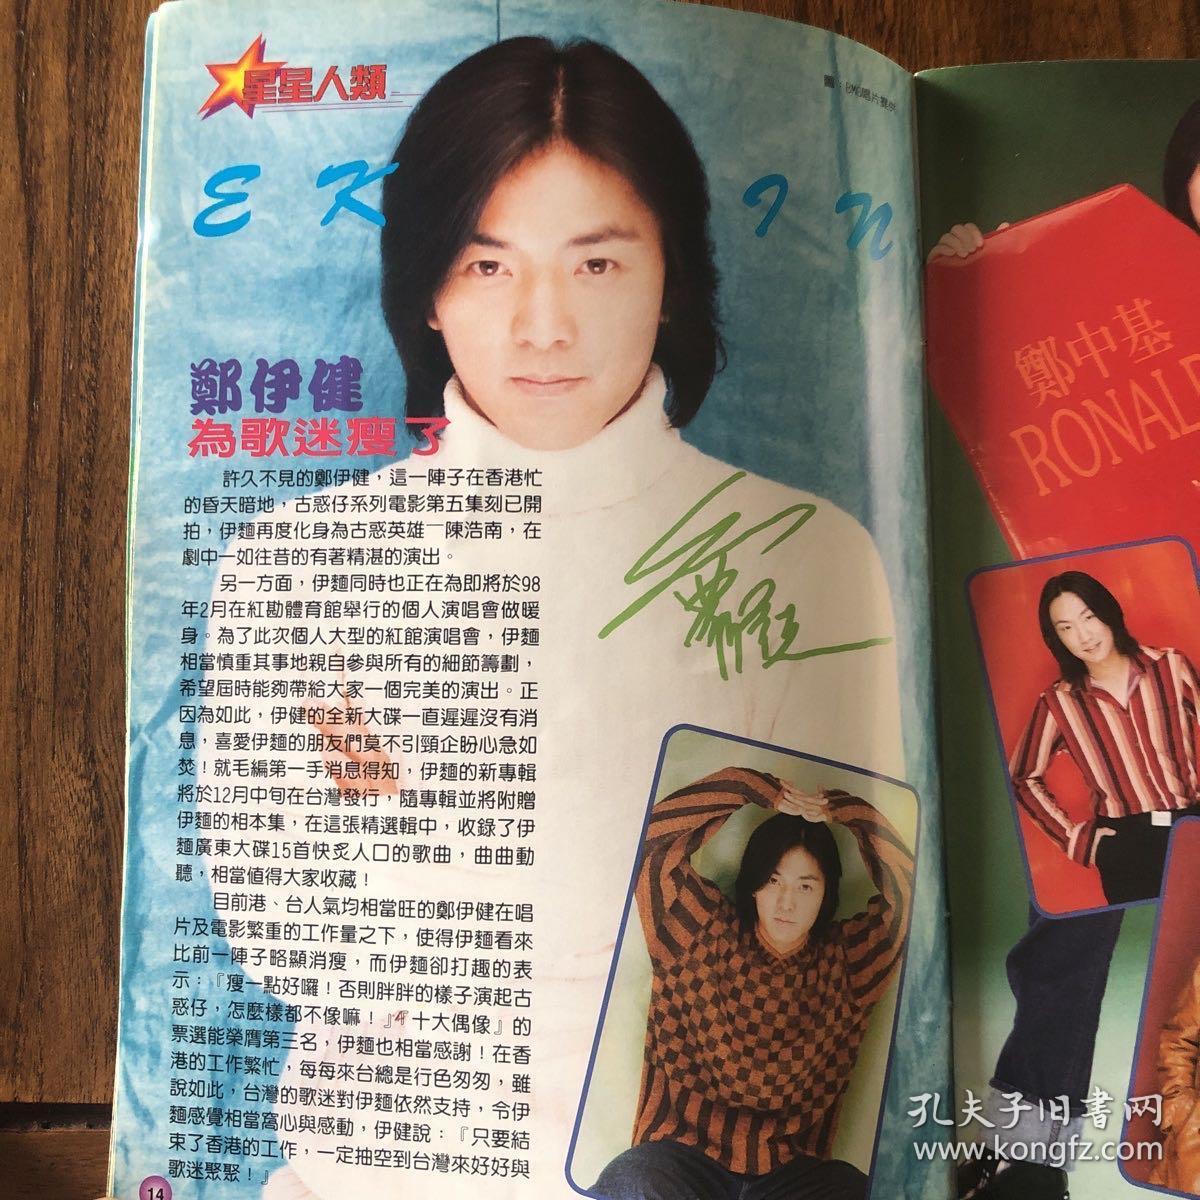 星星人類
圖：BMG唱片提供
EKIN
鄭伊健
為歌迷瘦了
許久不見的鄭伊健，這一陣子在香港忙
的昏天暗地，古惑仔系列電影第五集刻已開
拍，伊麵再度化身為古惑英雄—陳浩南，在
劇中一如往昔的有著精湛的演出。
另一方面，伊麵同時也正在為即將於98
年2月在紅勘體育館舉行的個人演唱會做暖
身。為了此次個人大型的紅館演唱會，伊麵
相當慎重其事地親自參與所有的細節籌劃，
希望屆時能夠帶給大家一個完美的演出。正
因為如此，伊健的全新大碟一直遲遲沒有消
息，喜愛伊麵的朋友們莫不引頸企盼心急如
焚！就毛編第一手消息得知，伊麵的新專輯
將於12月中旬在台灣發行，隨專輯並將附贈
伊麵的相本集，在這張精選輯中，收錄了伊
麵廣東大碟15首快炙人口的歌曲，曲曲動
聽，相當值得大家收藏！
目前港、台人氣均相當旺的鄭伊健在唱
片及電影繁重的工作量之下，使得伊麵看來
比前一陣子略顯消瘦，而伊麵卻打趣的表
示：『瘦一點好囉！否則胖胖的樣子演起古
惑仔，怎麼樣都不像嘛！』『十大偶像』的
票選能榮膺第三名，伊麵也相當感謝！在香
港的工作繁忙，每每來台總是行色匆匆，雖
說如此，台灣的歌迷對伊麵依然支持，令伊
麵感覺相當窩心與感動，伊健說：『只要結
束了香港的工作，一定抽空到台灣來好好與
歌迷聚聚！』
14
鄭中基
RONAL
孔夫子旧書网
www.kongfz.com